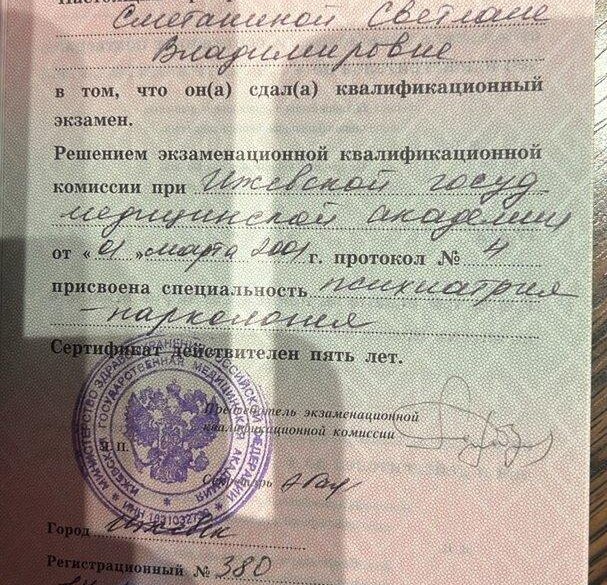 Сметаниной Светлане
Владимировне
в том, что он(а) сдал(а) квалификационный
экзамен.
Решением экзаменационной квалификационной
комиссии при Ижевской госуд
медицинской академии
от «01» марта 2001 г. протокол № 4
присвоена специальность психиатрия
-наркология
Сертификат действителен пять лет.
МИНИСТЕРСТВО ЗДРАВООХРАНЕНИЯ РОССИЙСКОЙ ФЕДЕРАЦИИ
ИЖЕВСКАЯ ГОСУДАРСТВЕННАЯ МЕДИЦИНСКАЯ АКАДЕМИЯ
Председатель экзаменационной
квалификационной комиссии
М. П.
Секретарь
Город Ижевск
Регистрационный № 380